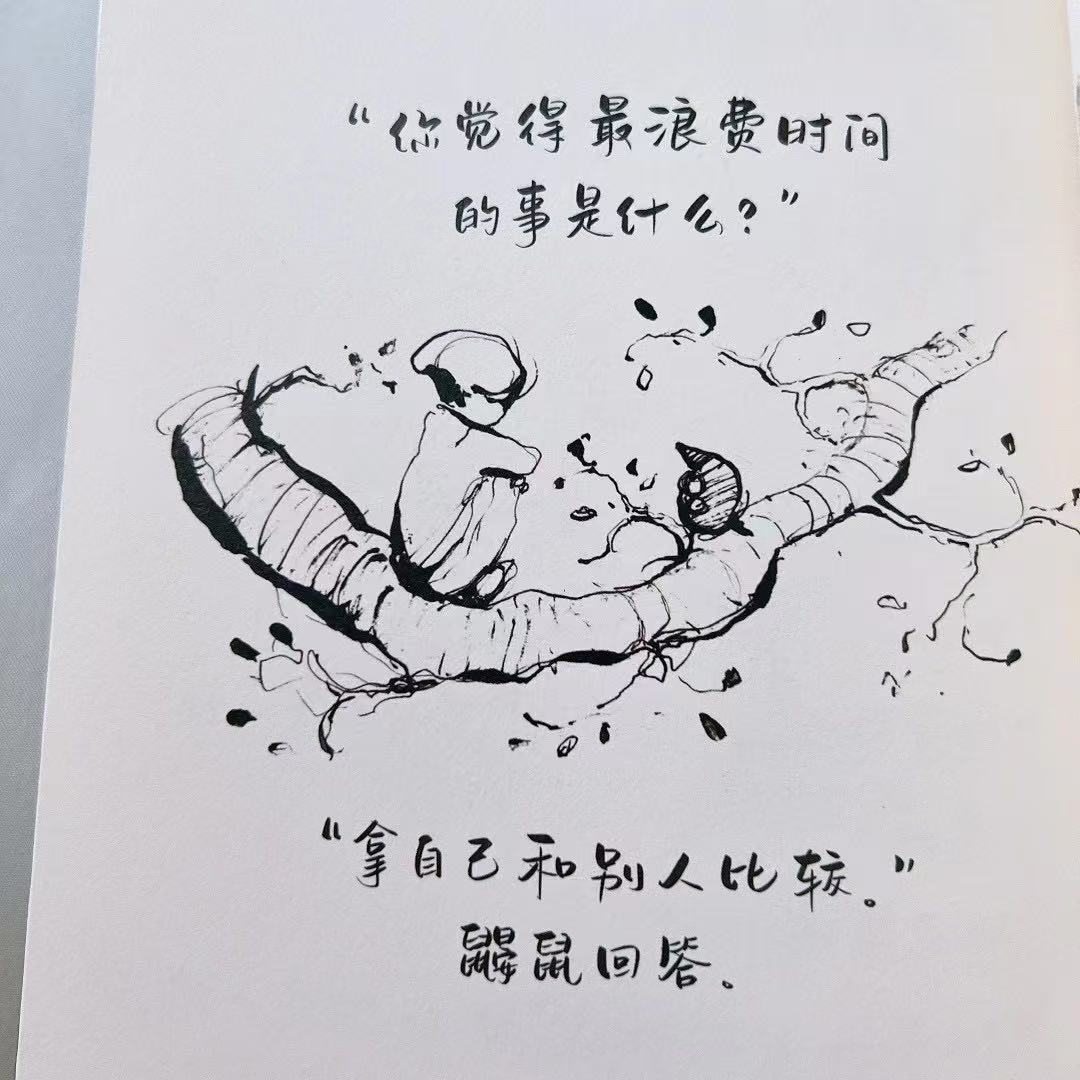 “你觉得最浪费时间
的事是什么？”
“拿自己和别人比较。”
鼹鼠回答。